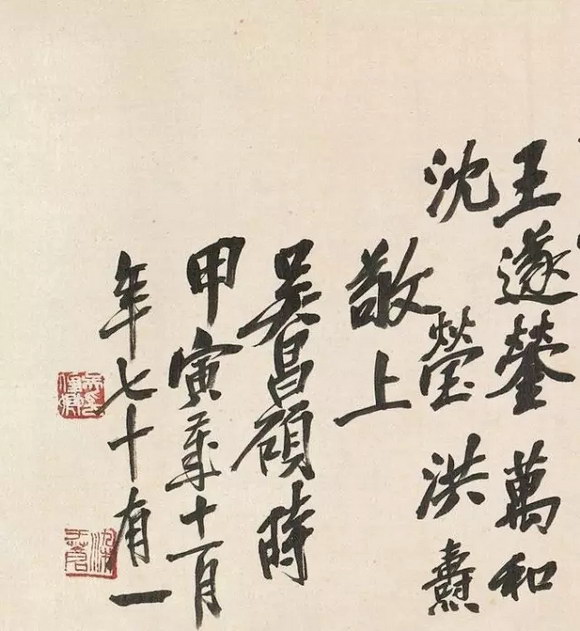 王鎣 萬和
沈 瑩 洪 燾
敬上
吳昌碩時
甲寅年十一月
年七十有一